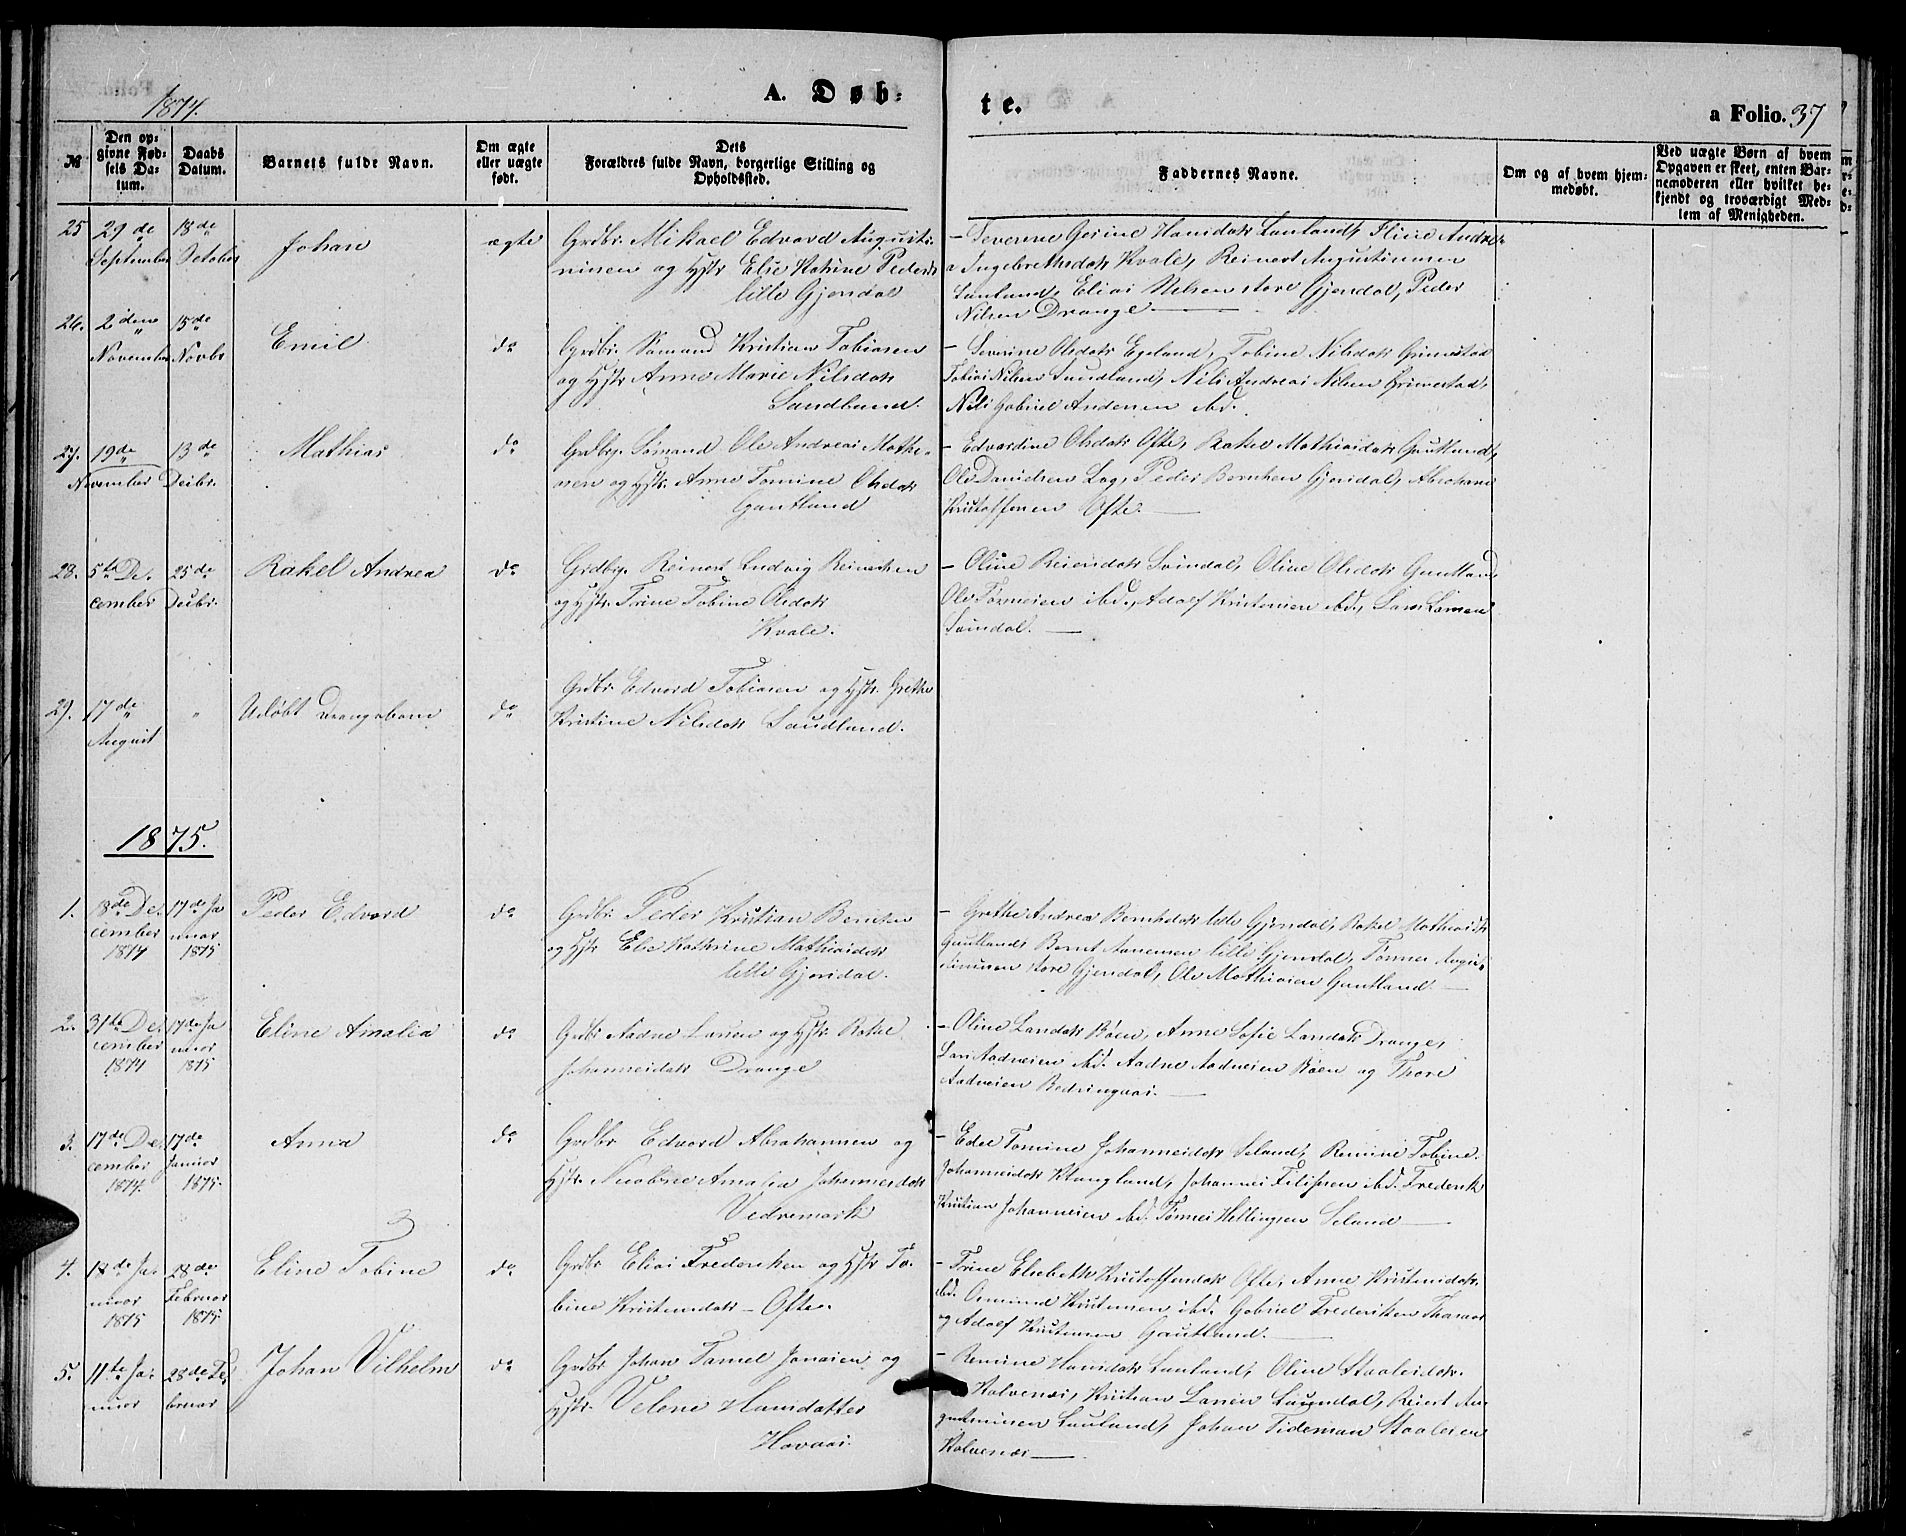 1874.
A. Døb-
te.
a Folio. 37
№
Den op-
givne Fød-
sels Da-
tum.
Daabs
Datum.
Barnets fulde Navn.
Om ægte
eller uægte
født.
Dets
Forældres fulde Navn, borgerlige Stilling og
Opholdssted.
Faddernes Navne.
Om og af hvem hjem-
medøbt.
Ved uægte Børn af hvem
Opgaven er skeet, enten Bar-
nemoderen eller hvilket be-
kjendt og troværdigt Med-
lem af Menigheden.
25
29de
September
18de
October
Johan
ægte
Grdbr. Mikael Edvard Augusti-
nusen og Hstr. Else Katrine Pedersd.
lille Gjersdal
– Severine Gurine Hansdatr Lauland, Eline Andre-
a Ingebretsdatr Kvale, Reinert Augustinusen
Lauland, Elias Nilsen store Gjersdal, Peder
Nilsen Drange
26.
2den
November
15de
Novbr
Emil
do
Grdbr. Sømand Kristian Tobiasen
og Hstr. Anne Marie Nilsdatr
Saudland.
– Severine Olsdatr Egeland, Tobine Nilsdatr Grimestad
Tobias Nilsen Saudland, Nils Andreas Nilsen Grimestad,
Nils Gabriel Andersen ibd.
27.
19de
November
13de
Decbr.
Mathias
do
Grdbr. Sømand Ole Andreas Mathi-
asen og Hstr. Anne Tomine Olsdatr
Gautland
– Edvardine Olsdatr Ofte, Rakel Mathiasdatr Gautland,
Ole Danielsen Log, Peder Berntsen Gjersdal, Abraham
Kristoffersen Ofte.
28.
5te De-
cember
25de
Decbr.
Rakel Andrea
do
Grdbr. Reinert Ludvig Reinertsen
og Hstr. Trine Tobine Olsdatr
Kvale.
– Oline Reiersdatr Svindal, Oline Olsdatr Gautland
Ole Tønnesen ibd., Adolf Kristensen ibd., Lars Larsen
Svindal.
29.
17de
August
"
Udøbt Drengebarn
do
Grdbr. Edvard Tobiasen og Hstr. Grethe
Kristine Nilsdatr Saudland.
1875.
1.
18de De-
cember
1874
17de Ja
nuar
1875
Peder Edvard
do
Grdbr. Peder Kristian Berntsen
og Hstr. Else Kathrine Mathiasdatr
lille Gjersdal.
– Grethe Andrea Berntsdatr lille Gjersdal, Rakel Mathiasdr
Gautland, Bernt Aanensen lille Gjersdal, Tønnes Augu-
stinusen store Gjersdal, Ole Mathiasen Gautland.
2.
31te De-
cember
1874
17de Ja
nuar
1875
Eline Amalia
do
Grdbr. Aadne Larsen og Hstr. Rakel
Johannesdatr Drange
– Oline Larsdatr Røen, Anne Sofie Larsdatr Drange,
Lars Aadnesen ibd. Aadne Aadnesen Røen og Thore
Aadnesen
3.
17de De-
cember
1874.
17de
Januar
1875.
Anna
do
Grdbr. Edvard Abrahamsen og
Hstr. Nicoline Amalia Johannesdatr
Vedremark
– Edel Tomine Johannesdatr Seland, Remine Tobine
Johannesdatr Klungland, Johannes Filipsen ibd. Frederik
Kristian Johannesen ibd. Tønnes Hellingsen Seland
4.
18de Ja-
nuar
1875
28de
Februar
1875
Eline Tobine
do
Grdbr. Elias Frederiksen og Hstr. To-
bine Kristensdatr – Ofte.
– Trine Elisebeth Kristoffersdatr Ofte, Anne Kristensdatr
ibd. Osmund Kristensen ibd. Gabriel Frederiksen
og Adolf Kristensen Gautland.
5.
11te Ja-
nuar
28de Fe-
bruar
Johan Vilhelm
do
Grdbr Johan Tamel Jonasen og
Hstr. Velene Hansdatter
Hovaas.
– Remine Hansdatr Lauland, Oline Staalesdatr
Kalvenæs, Kristian Larsen Lauvdal, Reiert Au-
gustinusen Lauland, Johan Tideman Staalesen
Kalvenæs